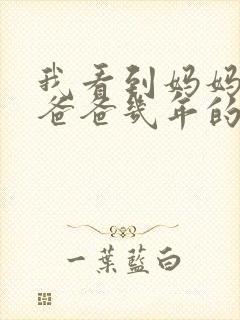 我看到妈妈
爸爸幾年的
一葉藍白